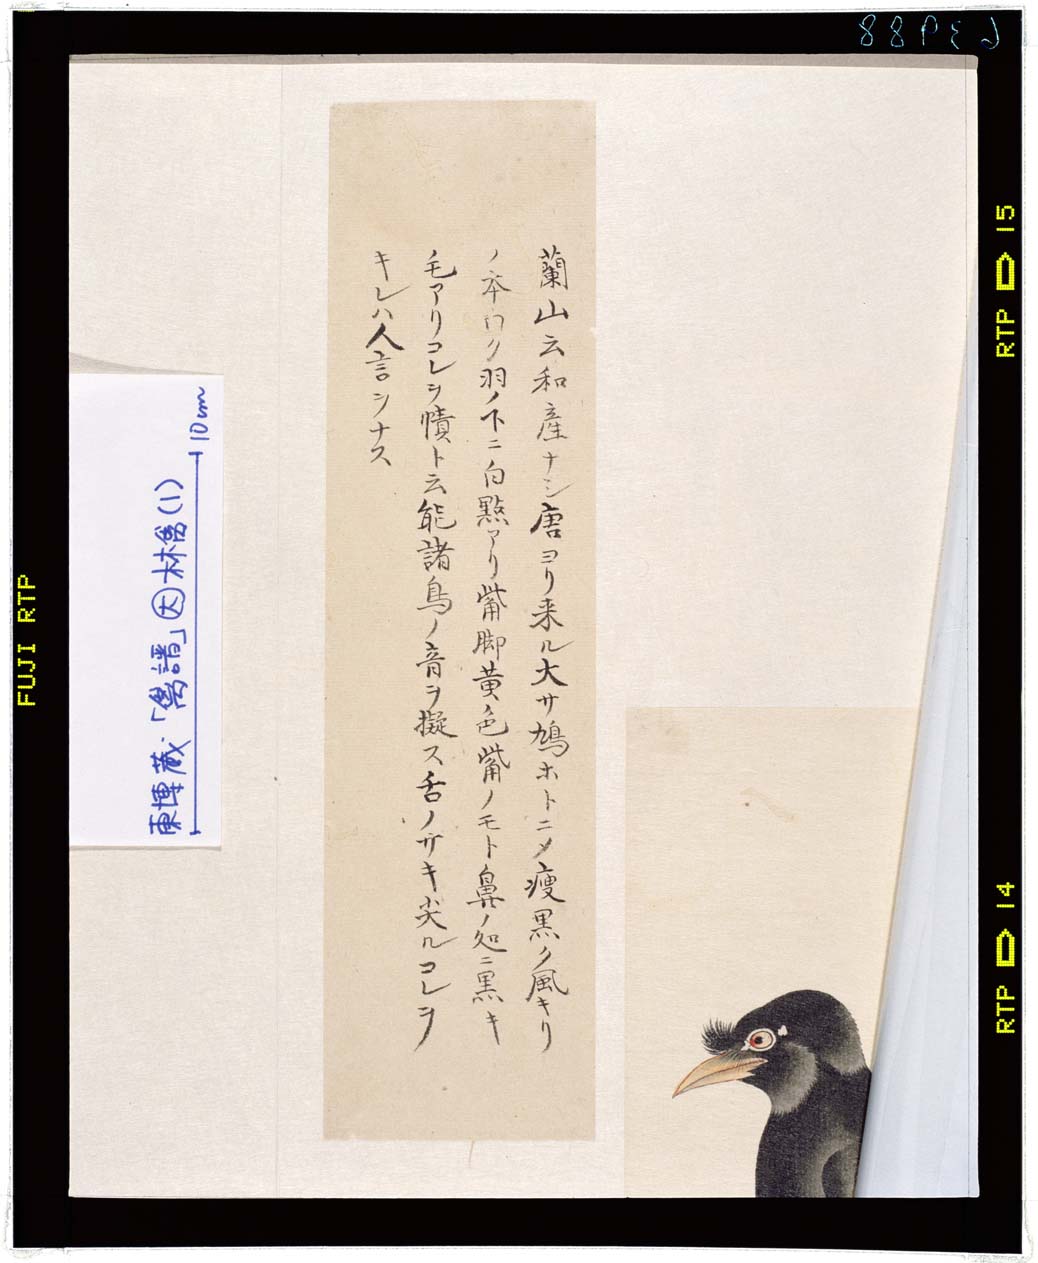 蘭山云和産ナシ唐ヨリ来ル大サ鳩ホトニメ瘦黒ク風キリ
ノ本白ク羽ノ下ニ白點アリ觜脚黄色觜ノモト鼻ノ処ニ黒キ
毛アリコレヲ幘ト云能諸鳥ノ音ヲ擬ス舌ノサキ尖ルコレヲ
キレハ人言ンナス
東博蔵・「鳥譜」因林禽(1)
10cm
FUJI RTP
RTP 15
RTP 14